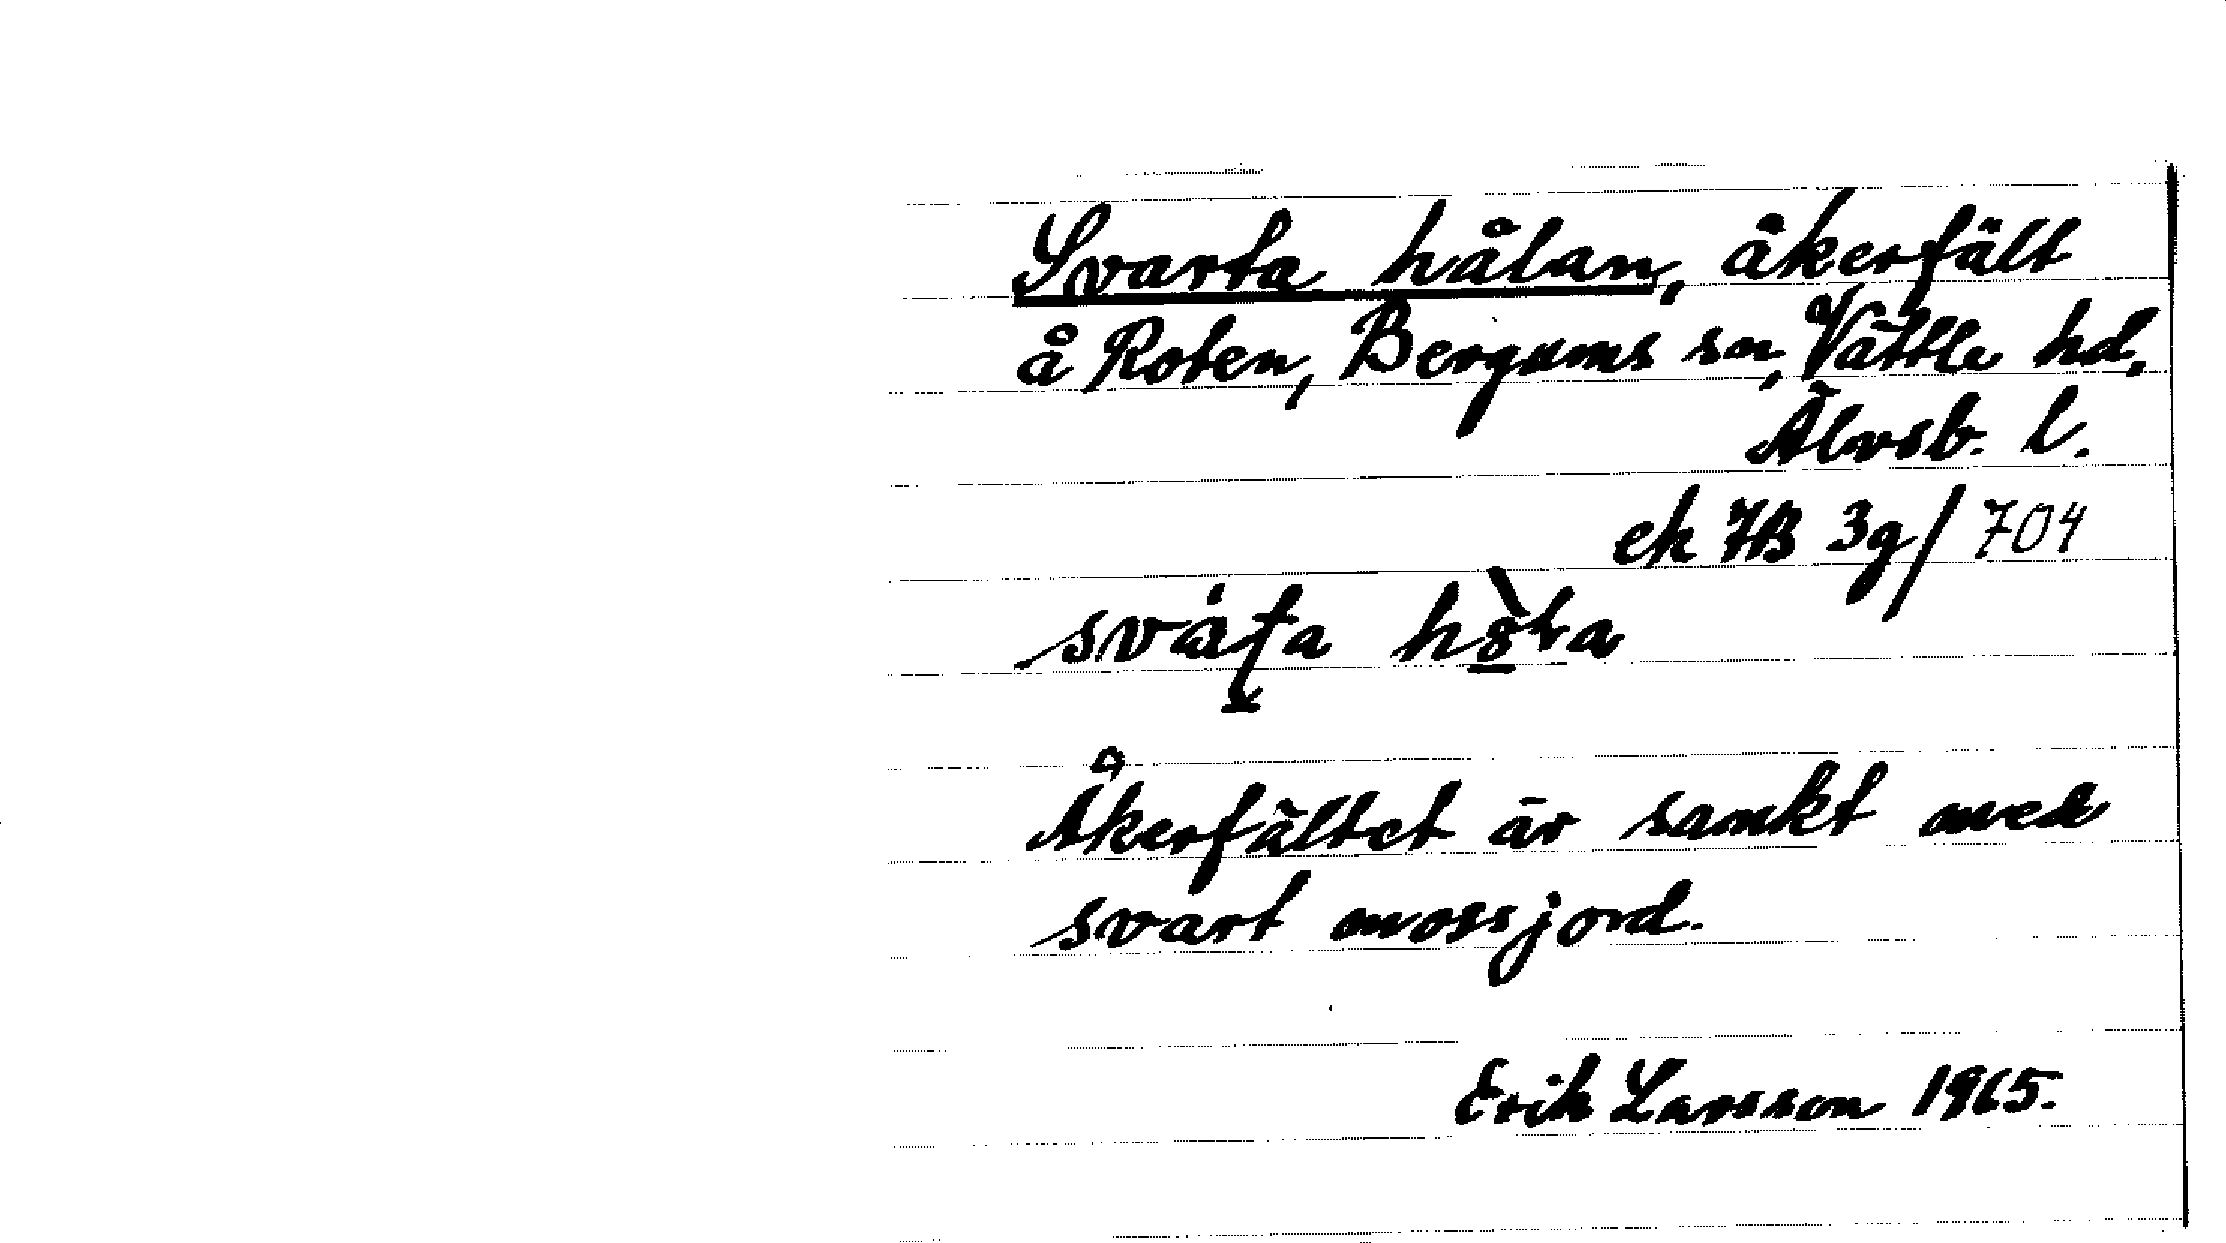 Svarta hålan, åkerfält
å Roten, Bergums sn, Vättle hd.
Älvsb. l.
ek 7B 3g/704
Åkerfältet är sankt med
svart mossjord.
Erik Larsson 1965.